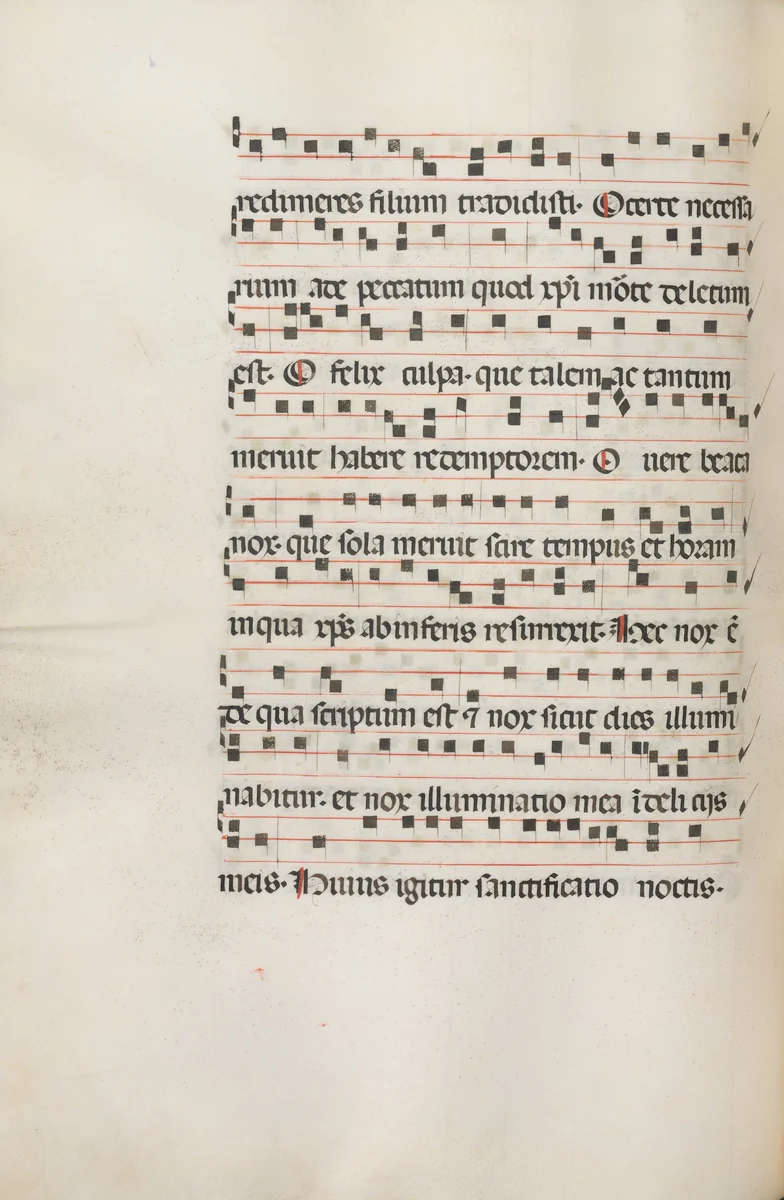 redimeres filium tradidisti. O certe necessa
rium ade peccatum quod xp̄i mōte deletum
est. O felix culpa. que talem ac tantum
meruit habere redemptorem. O uere beata
nox. que sola meruit scire tempus et horam
inqua xp̄s abinferis resurrexit. Hec nox ē
de qua scriptum est ⁊ nox sicut dies illumi
nabitur. et nox illuminatio mea ī deliciis
meis. Huius igitur sanctificatio noctis.